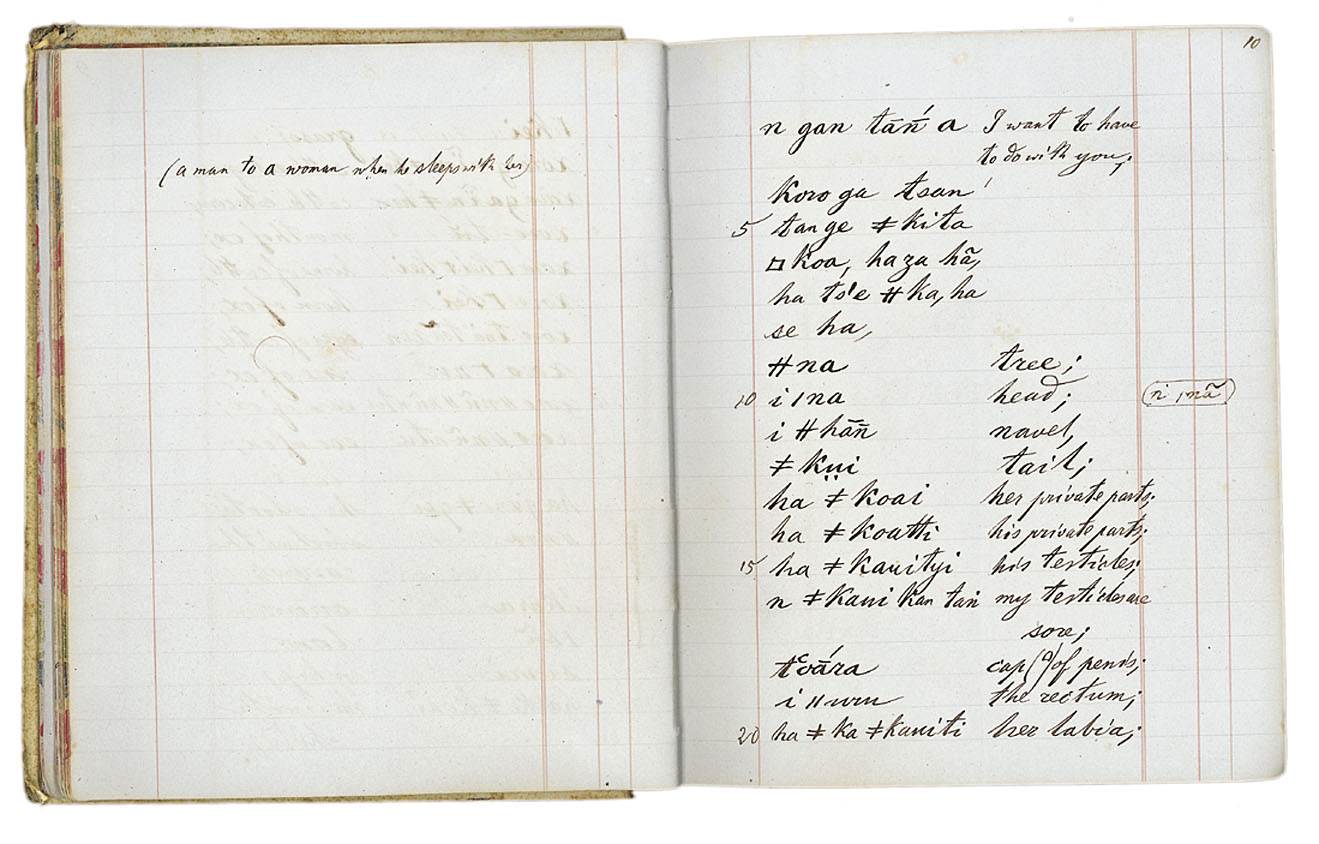 (a man to a woman when he sleeps with her)
10
n gan tāń a I want to have
to do with you;
Koro ga tsan
5 tange ǂkita
ʘkoa, haza hã,
ha ts'e ǂka, ha
se ha,
ǂna tree;
10 i ǀna head; (n ǀnã)
i ǂhan̄ navel,
ǂkui tail;
ha ǂkoai her private parts;
ha ǂkoatti his private parts;
15 ha ǂkauityi his testicles;
n ǂkaui kan tan my testicles are
sore;
cap(?) of penis;
i ǁuru the rectum;
20 ha ǂka ǂkauiti her labia;